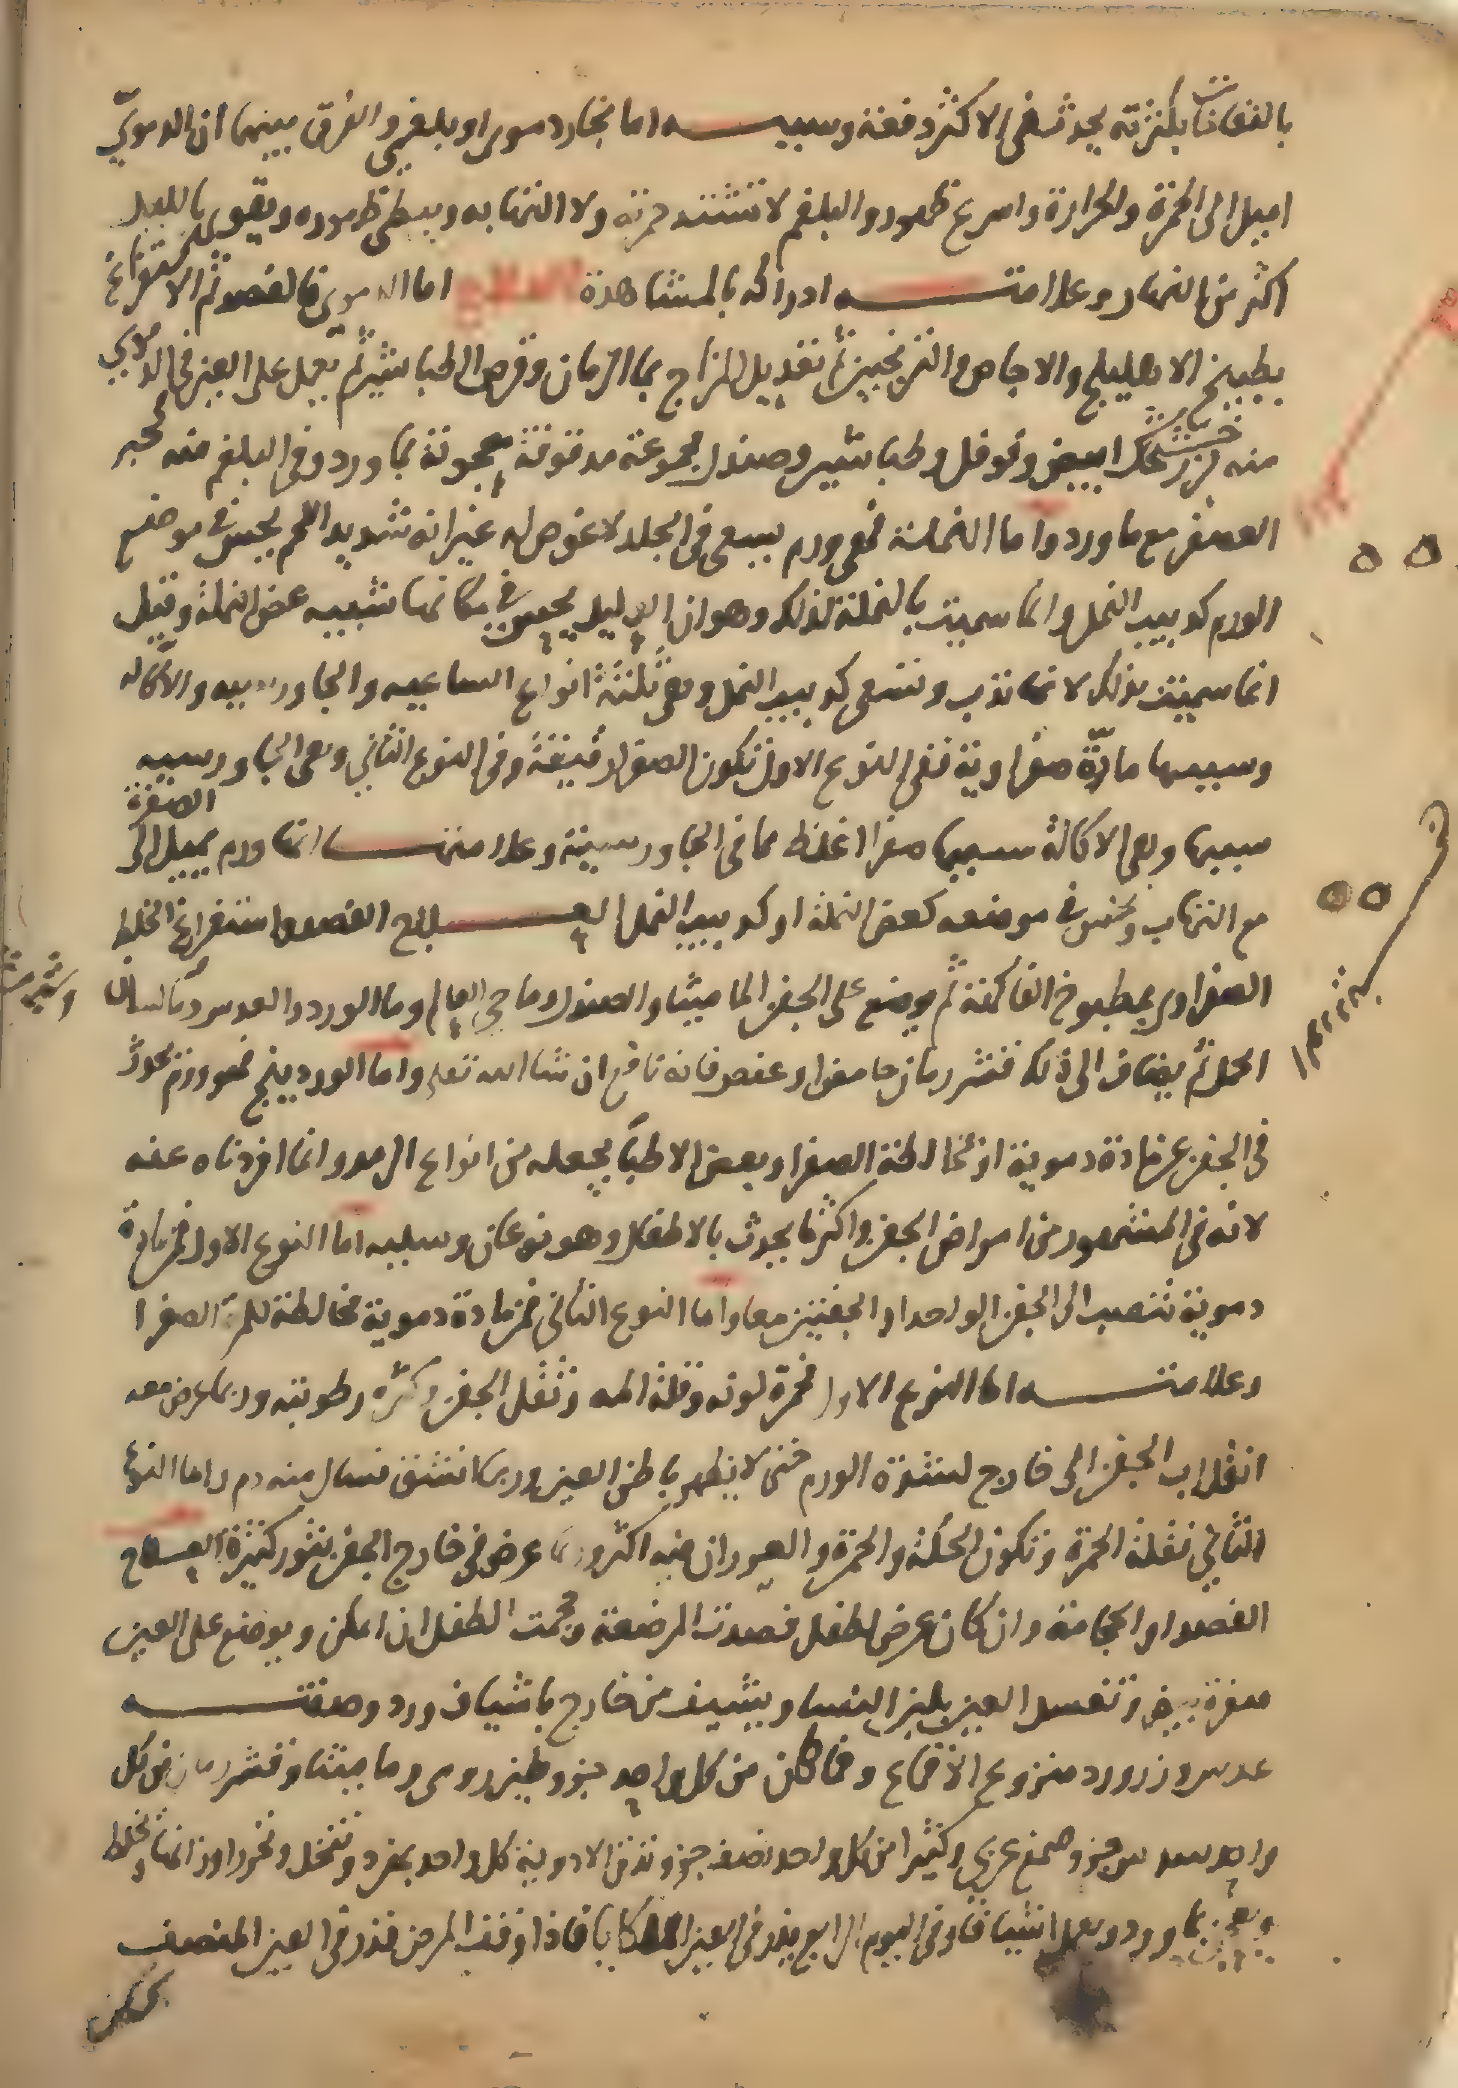 بالنفاخات بكثرته يحدث في الاكثر دفعة وسببه اما بخار دموي او بلغمي والفرق بينهما ان الدموي
اميل الى الحمرة والحرارة واسرع ظهور والبلغم لا تشتد حمرته ولا التهابه ويبطي ظهوره ويقوى بالليل
اكثر من النهار وعلامته ادراكه بالمشاهدة العلاج اما الدموي فالفصد ثم الاستفراغ
بطبيخ الاهليلج والاجاص والترنجبين ثم تعديل المزاج بما الرمان وقرص الطباشير ثم يعمل على العين في الدموي
منه بزر خشخاش ابيض وفوفل وطباشير وصندل مجموعة مدقوقة معجونة بما ورد وفي البلغم منه
العصفر مع ما ورد واما النملة فهي ورم يسعى في الجلد لا غوص له غير انه شديد الالم يحس في موضع
الورم كدبيب النمل وانما سميت بالنملة لذلك وهو ان العليل يحس في مكانها شبيه عض النملة وقيل
انما سميت بذلك لانها تذب وتسعى كدبيب النمل وهي ثلثة انواع الساعيه والجاورسيه والاكاله
وسببها مادّة صفراوية ففي النوع الاول تكون الصفرا رقيقة وفي النوع الثاني وهي الجاورسيه
سببها وهي الاكالة سببها صفرا اغلظ مما في الجاورسية وعلامتها انها ورم يميل الى الصفرة
مع التهاب ونخس في موضعه كعض النملة او كدبيب النمل العلاج الفصد واستفراغ الخلط
الصفراوي بمطبوخ الفاكهة ثم يوضع على الجفن الماميثا والصندل وما حي العالم وما الورد والعدس وما لسان
الحمل ثم يضاف الى ذلك قشر رمان حامض او عفص فانه نافع ان شا الله تعلى واما الوردينج فهو ورم يحدث
في الجفن عن مادة دموية او مخالطة الصفرا وبعض الاطبا يجعله من انواع الرمد وانما افردناه عنه
لانه في المشهور من امراض الجفن واكثر ما يحدث بالاطفال وهو نوعان وسببه اما النوع الاول فمن مادة
دموية تنصب الى الجفن الواحد او الجفنين معا واما النوع الثاني فمن مادة دموية مخالطة للمرة الصفرا
وعلامته اما النوع الاول فحمرة لونه وقلة المه وثقل الجفن وكثرة رطوبته وربما عرض معه
انقلاب الجفن الى خارج لشدة الورم حتى لا يظهر باطن العين وربما انشق فسال منه دم واما النوع
الثاني فقلة الحمرة وتكون الحكة والحمرة والعبوران فيه اكثر وربما عرض في خارج الجفن بثور كثيرة العلاج
الفصد او الحجامة وان كان عرض لطفل فصدت المرضعة وحجمت الطفل ان امكن ويوضع على العين
صفرة بيض وتغسل العين بلبن النسا ويشيف من خارج باشياف ورد وصفته
عدس وزرورد منزوع الاقماع وفاكان من كل واحد جزو وطين رومي وماميثا وقشر رمان من كل
واحد سدس جزو وصمغ عربي وكثيرا من كل واحد نصف جزو وتدق الادوية كل واحد بمفرده وتنخل وتحرر اوزانها وتخلط
وتعجن بما ورد ويعمل اشيافا وفي اليوم الرابع يذر في العين الملكايا فاذا وقف المرض فذر في العين المنصف